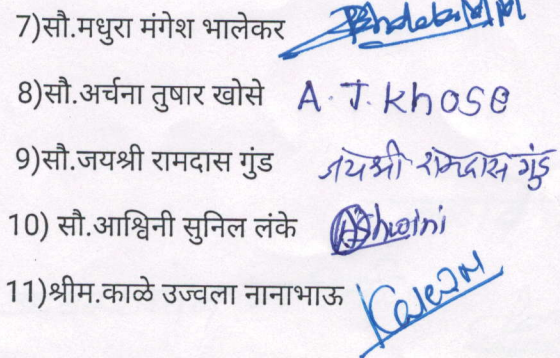 7)सौ.मधुरा मंगेश भालेकर Bhalekar M M
8)सौ.अर्चना तुषार खोसे A. T. Khose
9)सौ.जयश्री रामदास गुंड जयश्री रामदास गुंड
10) सौ.आश्विनी सुनिल लंके Ashwini
11)श्रीम.काळे उज्वला नानाभाऊ